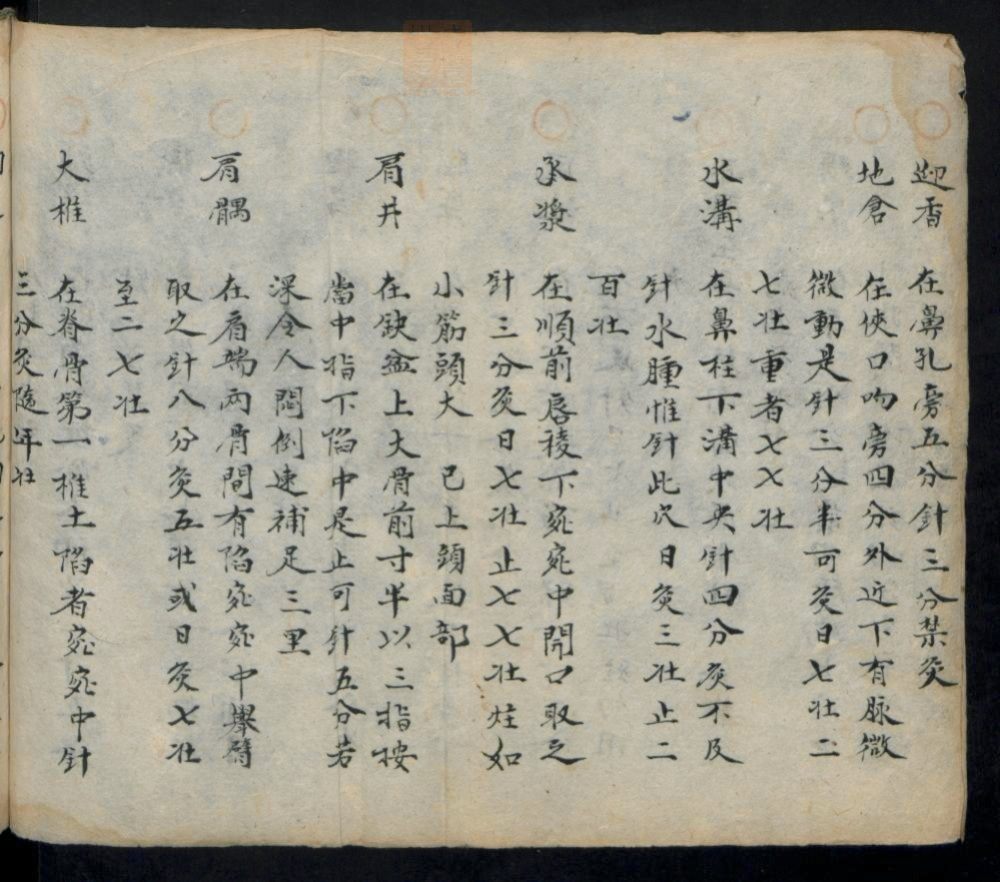 迎香 在鼻孔旁五分針三分禁灸
地倉 在俠口吻旁四分外近下有脉微
微動是針三分半可灸日七壮二
七壮重者七七壮
水溝 在鼻柱下溝中央針四分灸不及
針水腫惟針此穴日灸三壮止二
百壮
承漿 在順前唇稜下宛宛中開口取之
針三分灸日七壮止七七壮炷如
小筋頭大 已上頭面部
肩井 在缺盆上大骨前寸半以三指按
當中指下陷中是止可針五分若
深令人悶倒速補足三里
肩髃 在肩端兩骨間有陷宛宛中舉臂
取之針八分灸五壮或日灸七壮
至二七壮
大椎 在脊骨第一椎土陷者宛宛中針
三分灸隨年壮